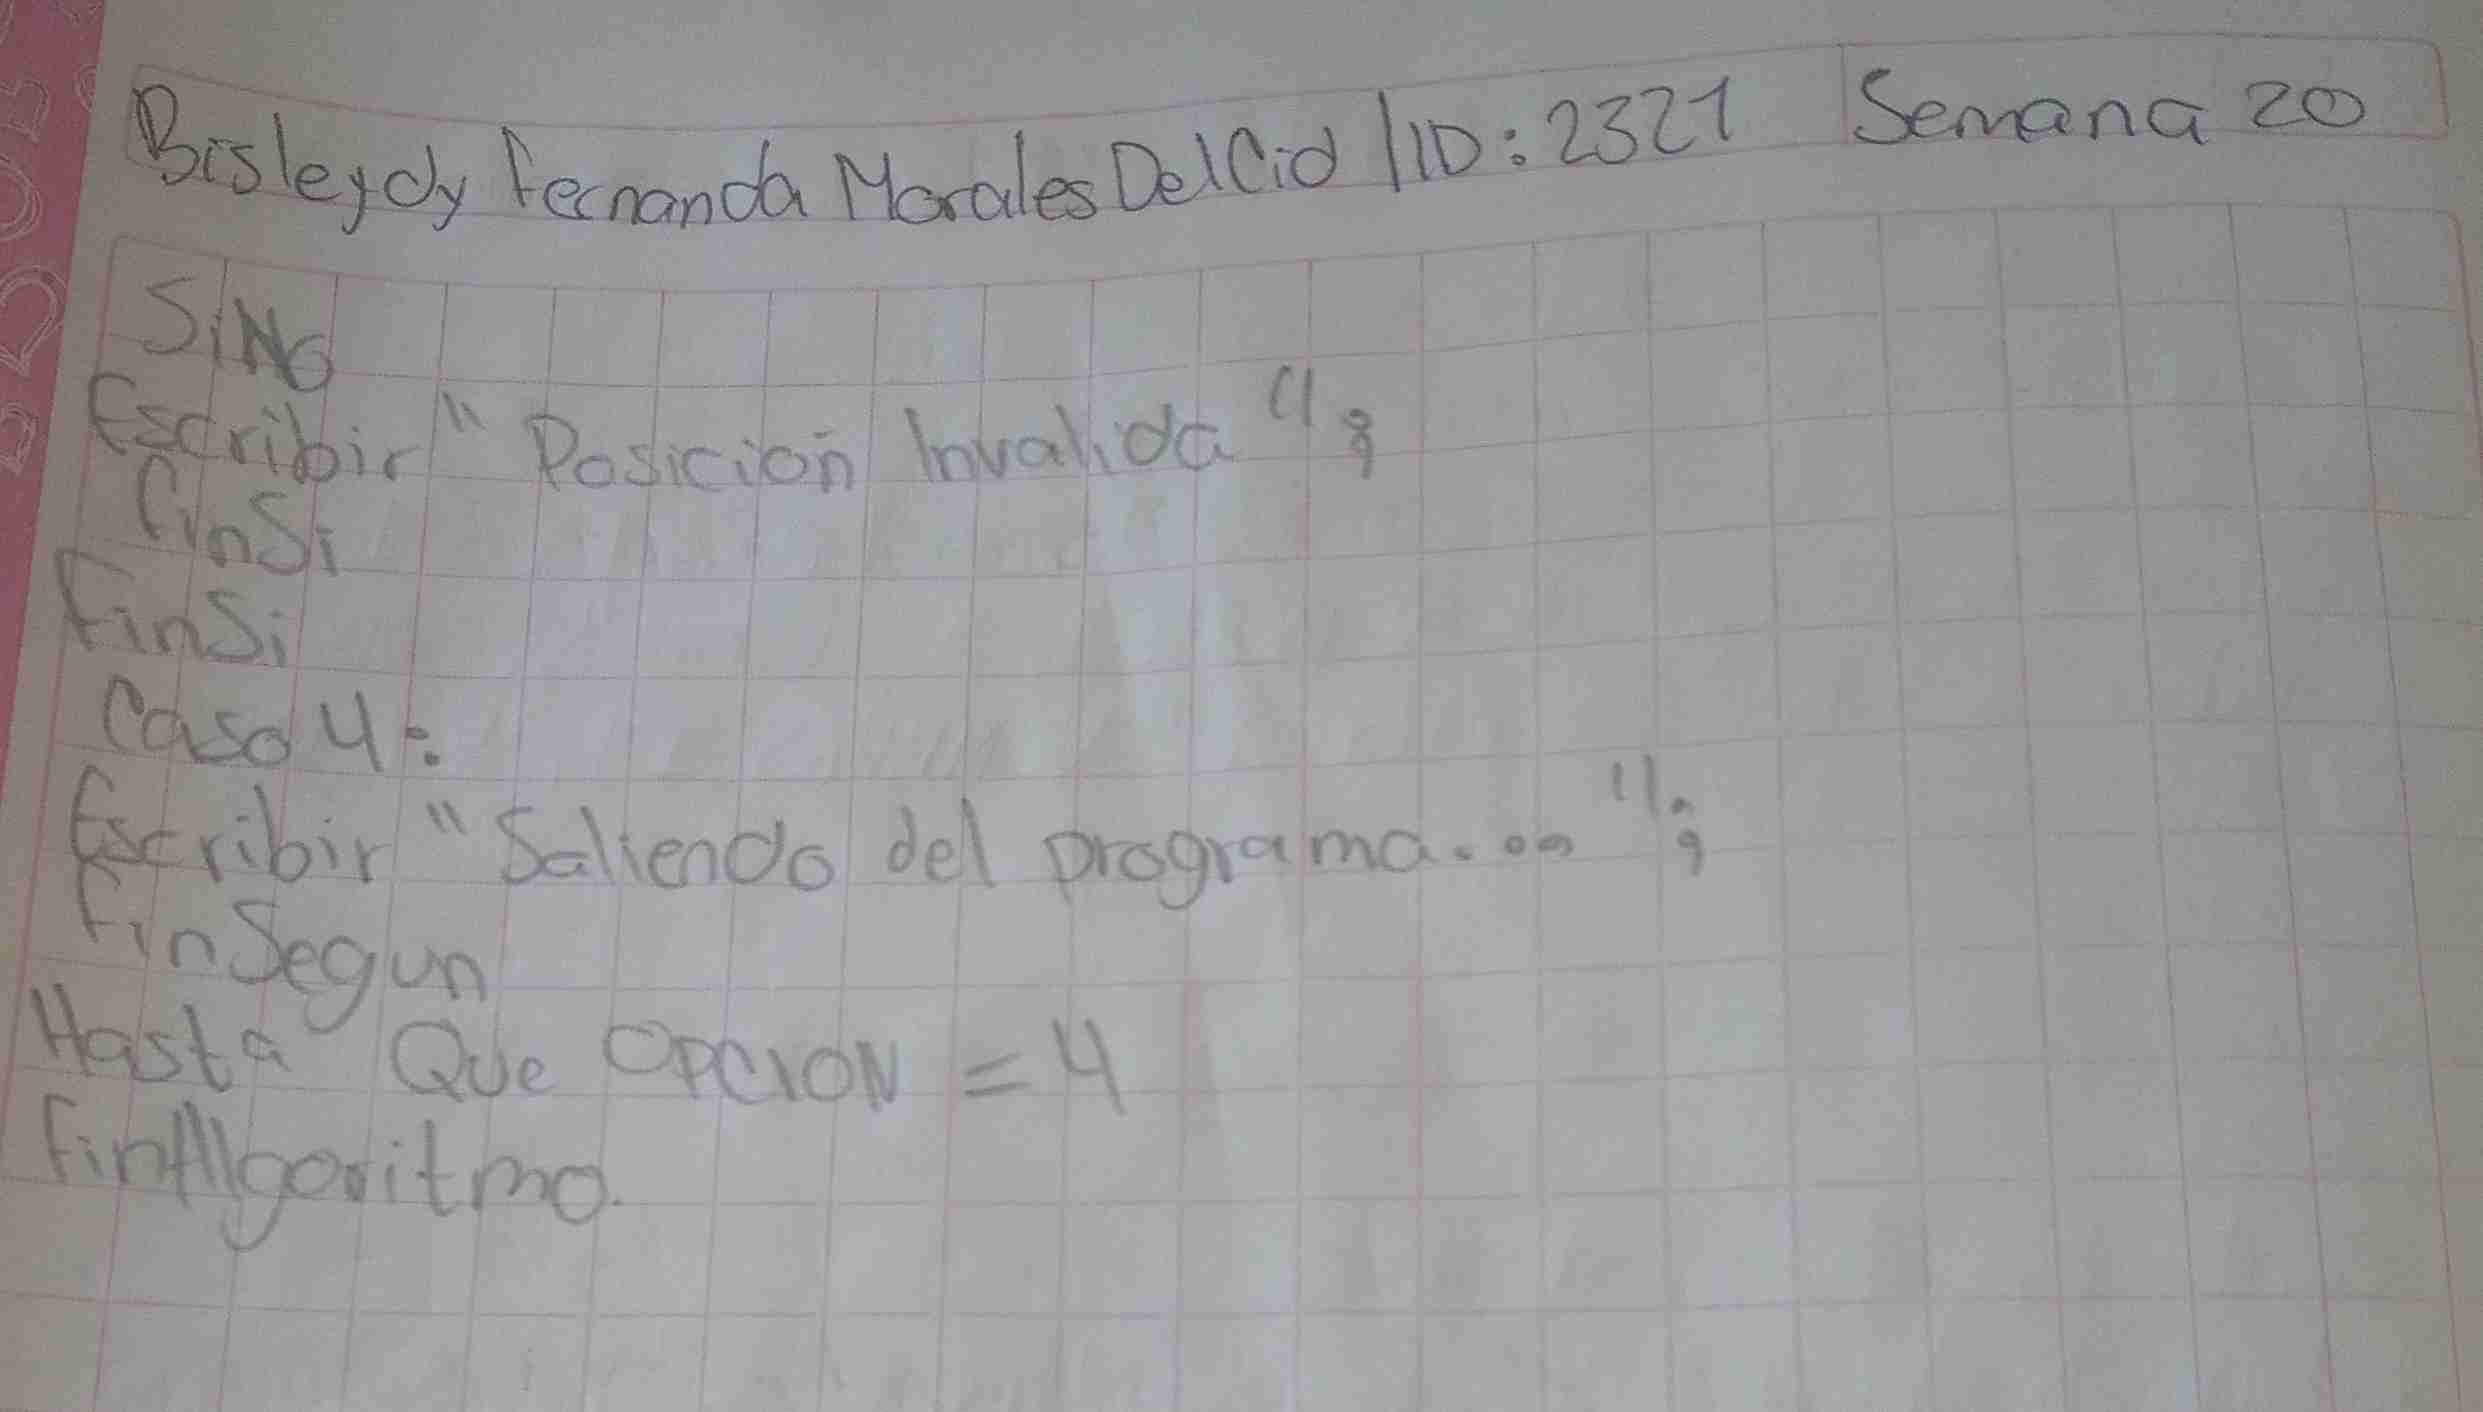 Bisleydy Fernanda Morales Del Cid | ID: 2321 Semana 20
SiNo
Escribir "Posición Invalida";
FinSi
FinSi
Caso 4:
Escribir "Saliendo del programa...";
FinSegun
Hasta Que OPCION = 4
FinAlgoritmo.